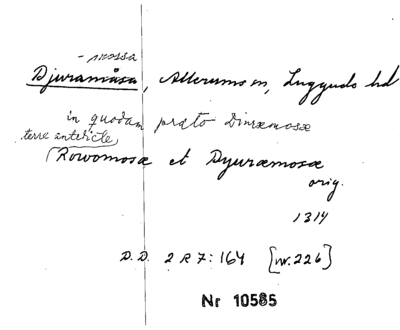 - mossa
Djuramåsa, Allerums sn, Luggude hd
in quodam prato Diuræmosæ
terre antedicte
(Rowomosæ et Dyuræmosæ
orig.
1314
D.D. 2 R 7: 164 [nr. 226]
Nr 10585